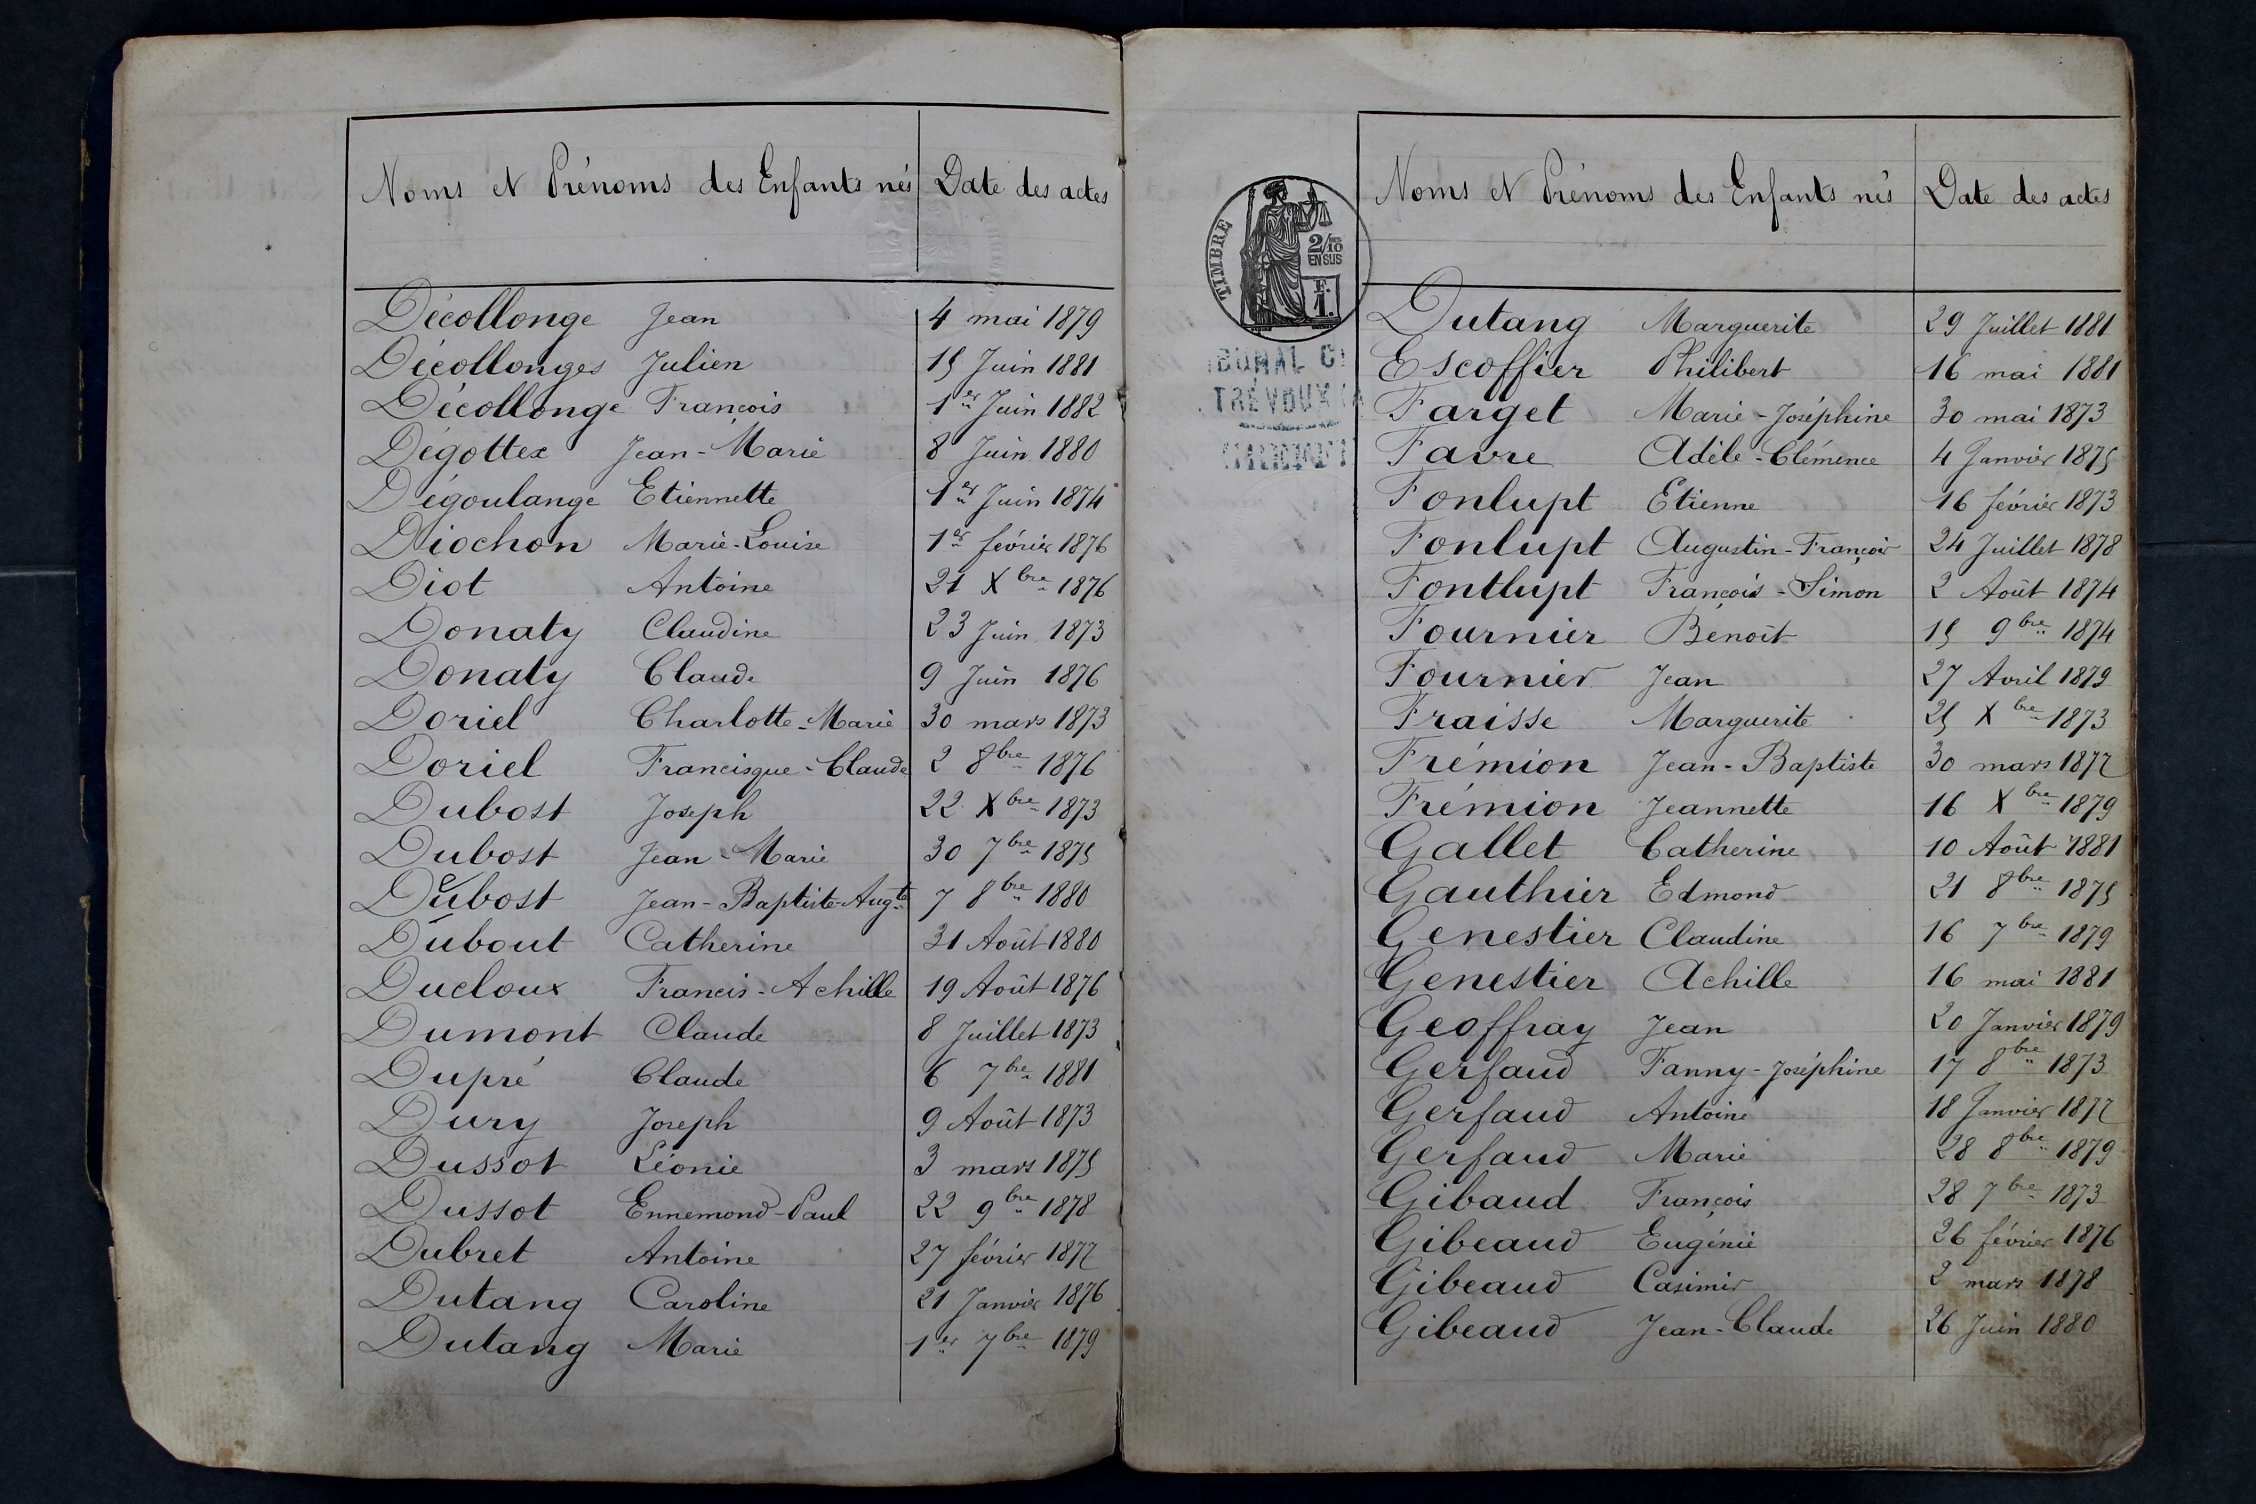 Noms et Prénoms des Enfants nés Date des actes
Décollonge Jean 4 mai 1879
Décollonges Julien 15 Juin 1881
Décollonge François 1er Juin 1882
Dégottex Jean-Marie 8 Juin 1880
Dégoulange Etiennette 1er Juin 1874
Diochon Marie-Louise 1er février 1876
Diot Antoine 21 Xbre 1876
Donaty Claudine 23 Juin 1873
Donaty Claude 9 Juin 1876
Doriel Charlotte-Marie 30 mars 1873
Doriel Francisque-Claude 2 8bre 1876
Dubost Joseph 22 Xbre 1873
Dubost Jean-Marie 30 7bre 1875
Dubost Jean-Baptiste-Augte 7 8bre 1880
Dubout Catherine 31 Août 1880
Ducloux Francis-Achille 19 Août 1876
Dumont Claude 8 Juillet 1873
Dupré Claude 6 7bre 1881
Dury Joseph 9 Août 1873
Dussot Léonie 3 mars 1875
Dussot Ennemond-Paul 22 9bre 1878
Dubret Antoine 27 février 1877
Dutang Caroline 21 Janvier 1876
Dutang Marie 1er 7bre 1879
Noms et Prénoms des Enfants nés Date des actes
TIMBRE
2/10
EN SUS
F.
1.
TRÉVOUX
Dutang Marguerite 29 Juillet 1881
Escoffier Philibert 16 mai 1881
Farget Marie-Joséphine 30 mai 1873
Favre Adèle-Clémence 4 Janvier 1875
Fonlupt Etienne 16 février 1873
Fonlupt Augustin-François 24 Juillet 1878
Fontlupt François-Simon 2 Août 1874
Fournier Benoît 15 9bre 1874
Fournier Jean 27 Avril 1879
Fraisse Marguerite 25 Xbre 1873
Frémion Jean-Baptiste 30 mars 1877
Frémion Jeannette 16 Xbre 1879
Gallet Catherine 10 Août 1881
Gauthier Edmond 21 8bre 1875
Genestier Claudine 16 7bre 1879
Genestier Achille 16 mai 1881
Geoffray Jean 20 Janvier 1879
Gerfaud Fanny-Joséphine 17 8bre 1873
Gerfaud Antoine 18 Janvier 1877
Gerfaud Marie 28 8bre 1879
Gibaud François 28 7bre 1873
Gibeaud Eugénie 26 février 1876
Gibeaud Casimir 2 mars 1878
Gibeaud Jean-Claude 26 Juin 1880